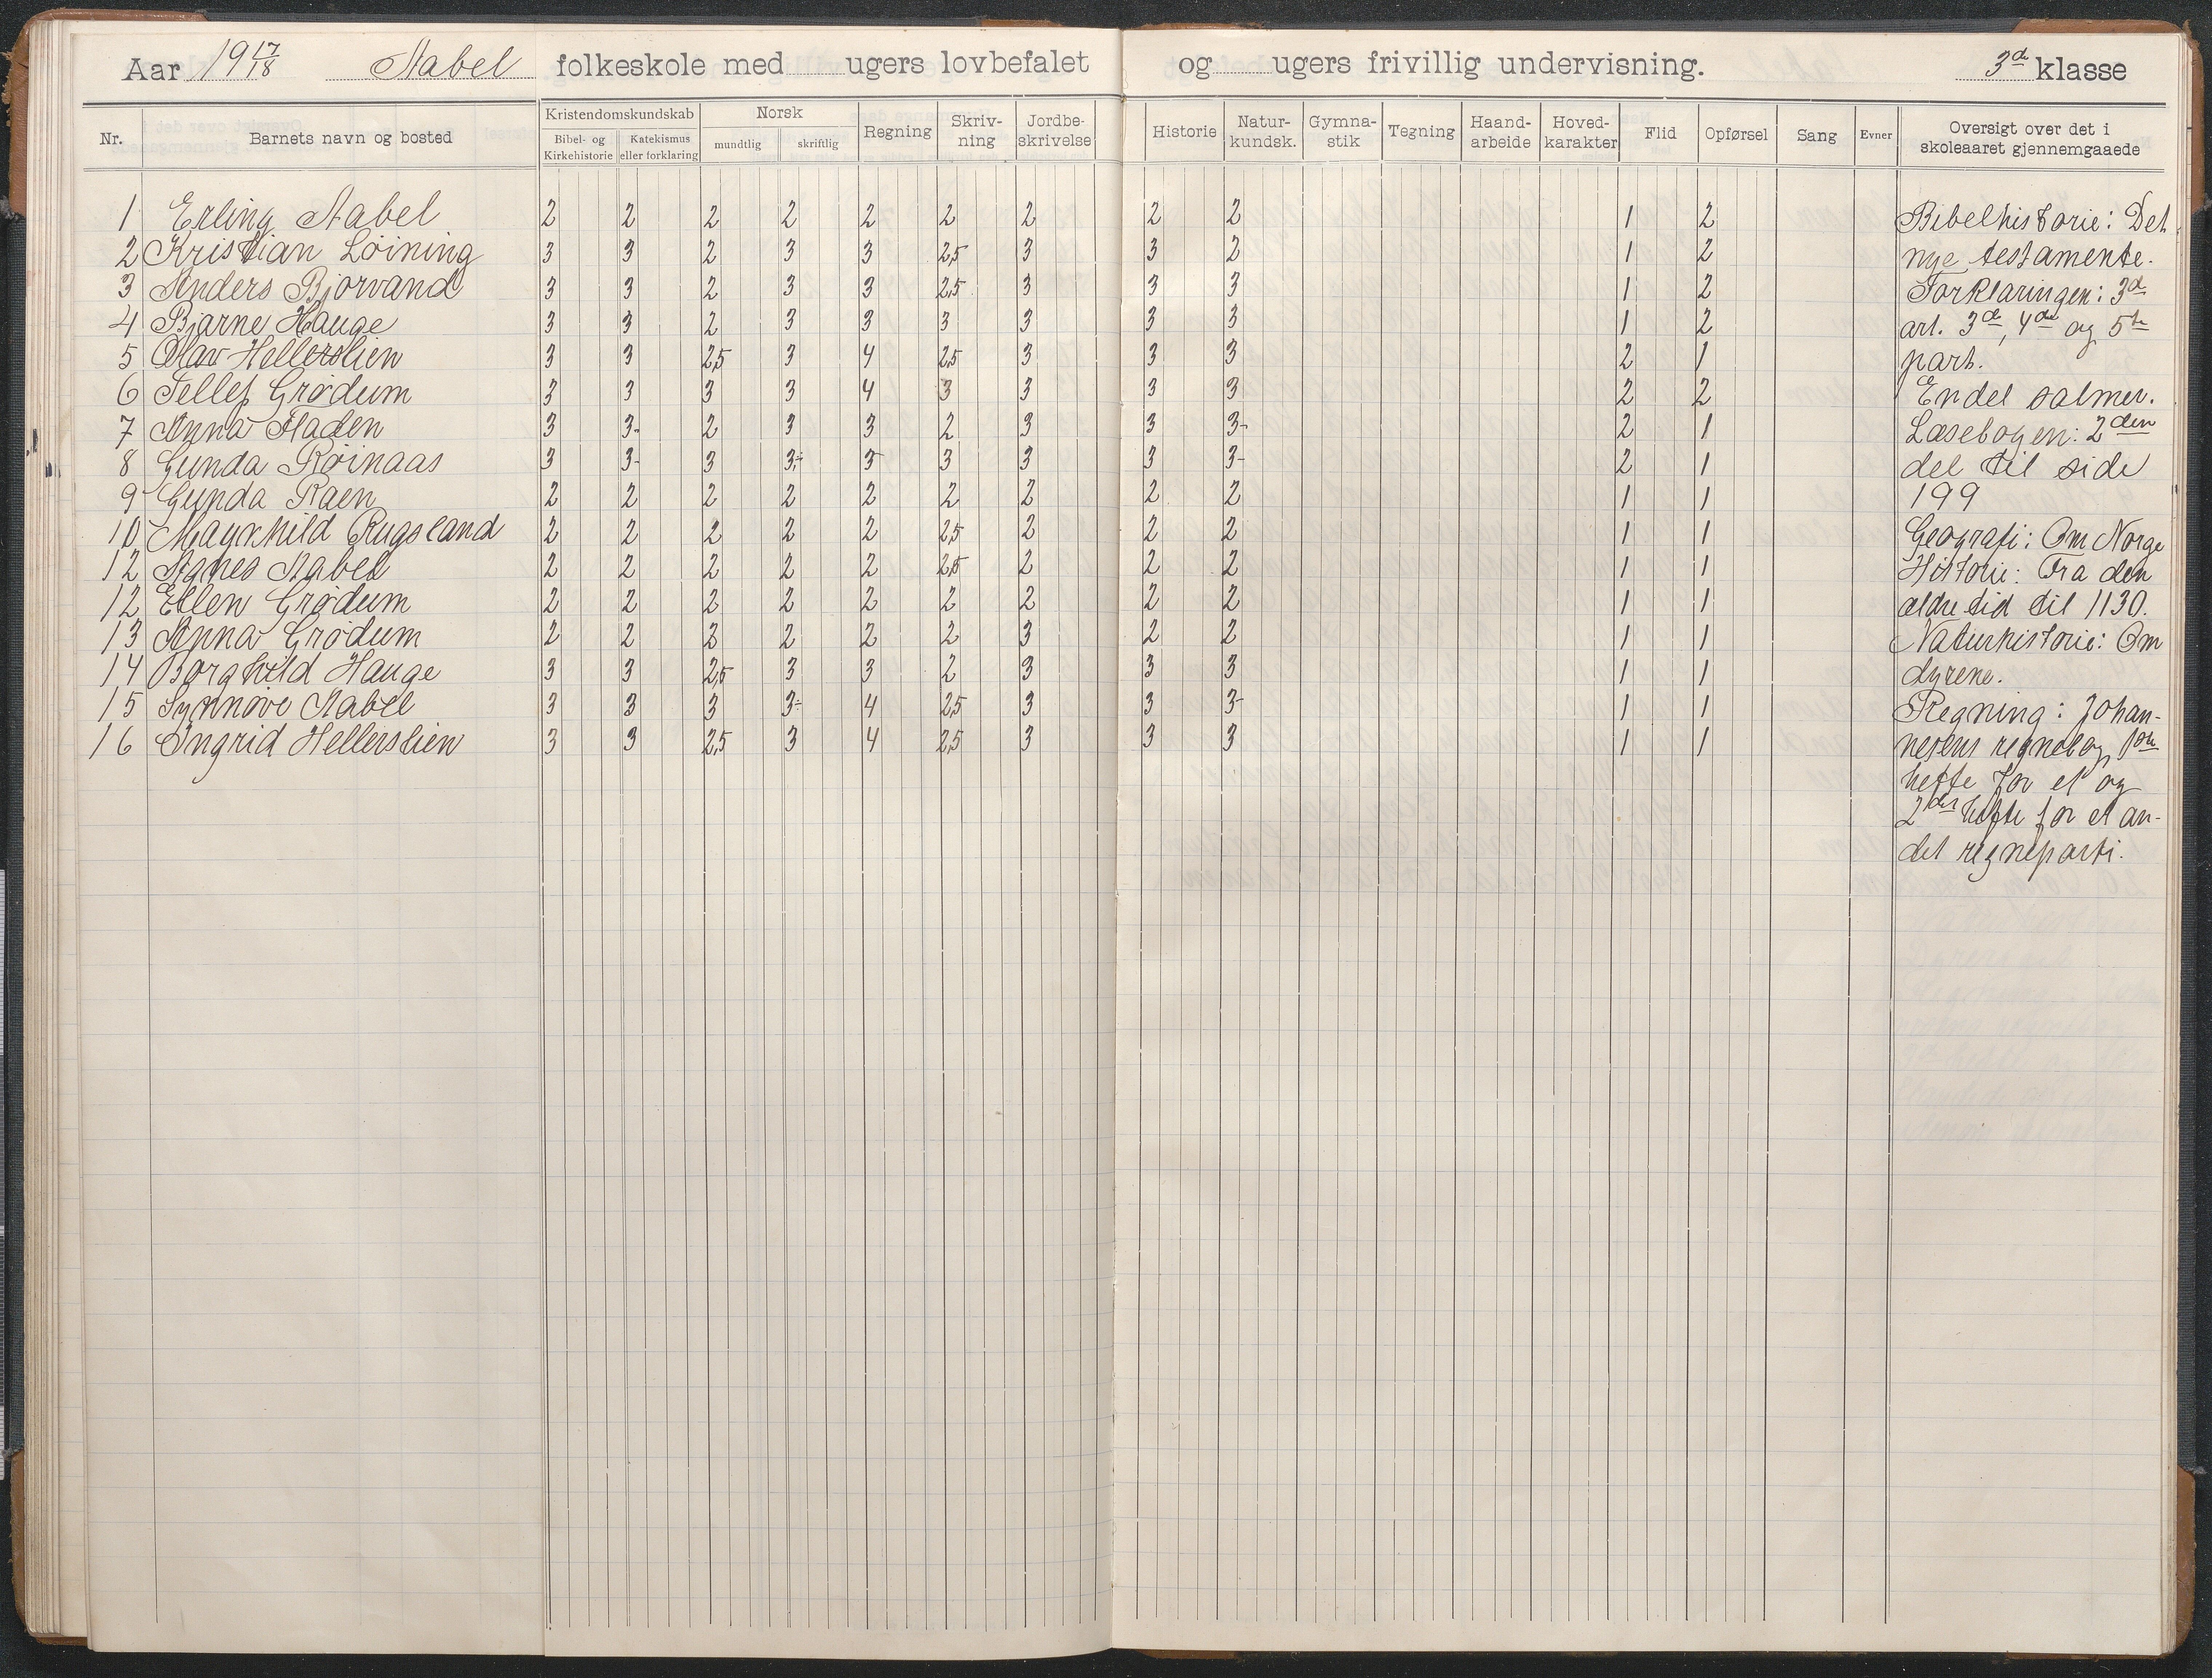 Aar 19 17/18 Aabel folkeskole med ugers lovbefalet og ugers frivillig undervisning. 3d klasse
Nr. Barnets navn og bosted Kristendomskundskab Bibel- og Kirkehistorie Katekismus eller forklaring Norsk mundtlig skriftlig Regning Skriv-ning Jordbe-skrivelse Historie Natur-kundsk. Gymna-stik Tegning Haand-arbeide Hoved-karakter Flid Opførsel Sang Evner Oversigt over det i skoleaaret gjennemgaaede
1 Erling Aabel 2 2 2 2 2 2 2 2 2 1 2 Bibelhistorie: Det
2 Kristian Løining 3 3 2 3 3 2,5 3 3 2 1 2 nye testamente.
3 Anders Bjorvand 3 3 2 3 3 2,5 3 3 3 1 2 Forklaringen: 3d
4 Bjarne Hauge 3 3 2 3 3 3 3 3 3 1 2 art. 3de, 4de og 5te
5 Olav Hellerslien 3 3 2,5 3 4 2,5 3 3 3 2 1 part.
6 Tellef Grødum 3 3 3 3 4 3 3 3 3 2 2 Endel salmer.
7 Anna Haden 3 3- 2 3 3 2 3 3 3- 2 1 Læsebogen: 2den
8 Gunda Røinaas 3 3- 3 3,- 3 3 3 3 3- 2 1 del til side
9 Gunda Raen 2 2 2 2 2 2 2 2 2 1 1 199
10 Magnhild Rugsland 2 2 2 2 2 2,5 2 2 2 1 1 Geografi: Om Norge
12 Agnes Aabel 2 2 2 2 2 2,5 2 2 2 1 1 Historie: Fra den
12 Ellen Grødum 2 2 2 2 2 2 2 2 2 1 1 ældre tid til 1130.
13 Anna Grødum 2 2 2 2 2 2 3 2 2 1 1 Naturhistorie: Om
14 Borghild Hauge 3 3 2,5 3 3 2 3 3 3 1 1 dyrene.
15 Synnøve Aabel 3 3 3 3- 4 2,5 3 3 3- 1 1 Regning: Johan-
16 Ingrid Hellerslien 3 3 2,5 3 4 2,5 3 3 3 1 1 nesens regnebog, 1ste
hefte for et og
2det hefte for et an-
det regneparti.